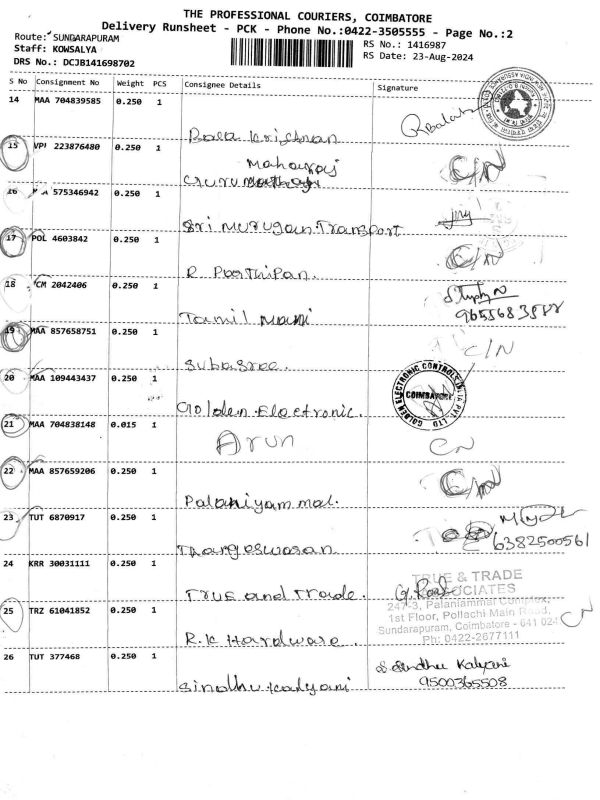 THE PROFESSIONAL COURIERS, COIMBATORE
Delivery Runsheet - PCK - Phone No.:0422-3505555 - Page No.:2
Route: SUNDARAPURAM
RS No.: 1416987
Staff: KOWSALYA
RS Date: 23-Aug-2024
DRS No.: DCJB141698702
S No Consignment No Weight PCS Consignee Details Signature
14 MAA 704839585 0.250 1
Bala Krishnan
15 VPI 223876480 0.250 1
Maharaj
Guru
C/N
575346942 0.250 1
Sri Murugan Transport
17 POL 4603842 0.250 1
R Parthipan.
C/N
18 CM 2042406 0.250 1
Tamil Mani
19 MAA 857658751 0.250 1
Subasree.
C/N
20 MAA 109443437 0.250 1
Golden Electronic.
GOLDEN ELECTRONIC CONTROLS
COIMBATORE
21 MAA 704838148 0.015 1
Arun
CN
22 MAA 857659206 0.250 1
Palaniyammal.
23 TUT 6870917 0.250 1
6382500561
24 KRR 30031111 0.250 1
True and Trade.
TRUE & TRADE
ASSOCIATES
247-3, Palaniammal Complex,
1st Floor, Pollachi Main Road,
Sundarapuram, Coimbatore - 641 024
Ph: 0422-2677111
25 TRZ 61041852 0.250 1
R.K Hardware.
CN
26 TUT 377468 0.250 1
Sindhu Kalyani
S. Sindhu Kalyani
9500365508